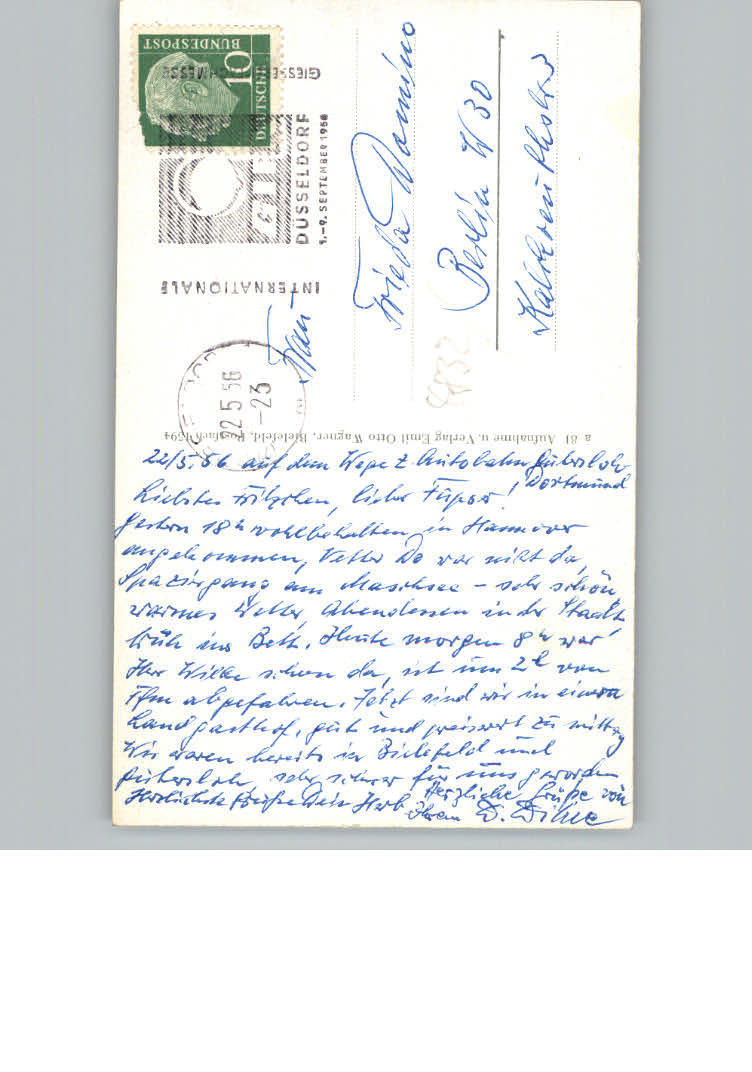 DEUTSCHE
BUNDESPOST
10
INTERNATIONALE
DÜSSELDORF
1.–9. SEPTEMBER 1956
22.5.56
-23
Frau
Frieda Domino
Berlin W 30
a 81 Aufnahme u. Verlag Emil Otto Wagner, Bielefeld, Postfach 1594
22/5.56 auf dem Wege z. Autobahn Gütersloh
Dortmund
Liebstes Fritzchen, lieber
gestern 18h wohlbehalten in Hannover
angekommen, Vetter Do war nicht da,
Spaziergang am Maschsee – sehr schön,
warmes Wetter, Abendessen in der Stadt,
früh ins Bett. Heute morgen 8h war
Herr Wilke schon da, ist um 2h von
Ffm abgefahren. Jetzt sind wir in einem
Landgasthof, gut und preiswert zu mittag
Wir waren bereits in Bielefeld und
Gütersloh sehr schwer für uns geworden
Herzlichste Grüße Dein Herb
Herzliche Grüße von
Ihrem D.